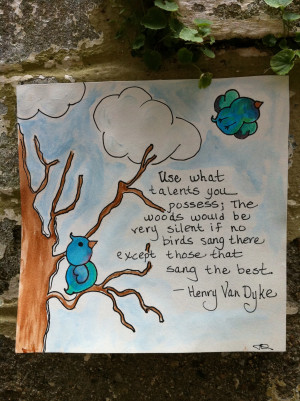 Use what
talents you
possess; The
woods would be
very silent if no
birds sang there
except those that
sang the best.
— Henry Van Dyke